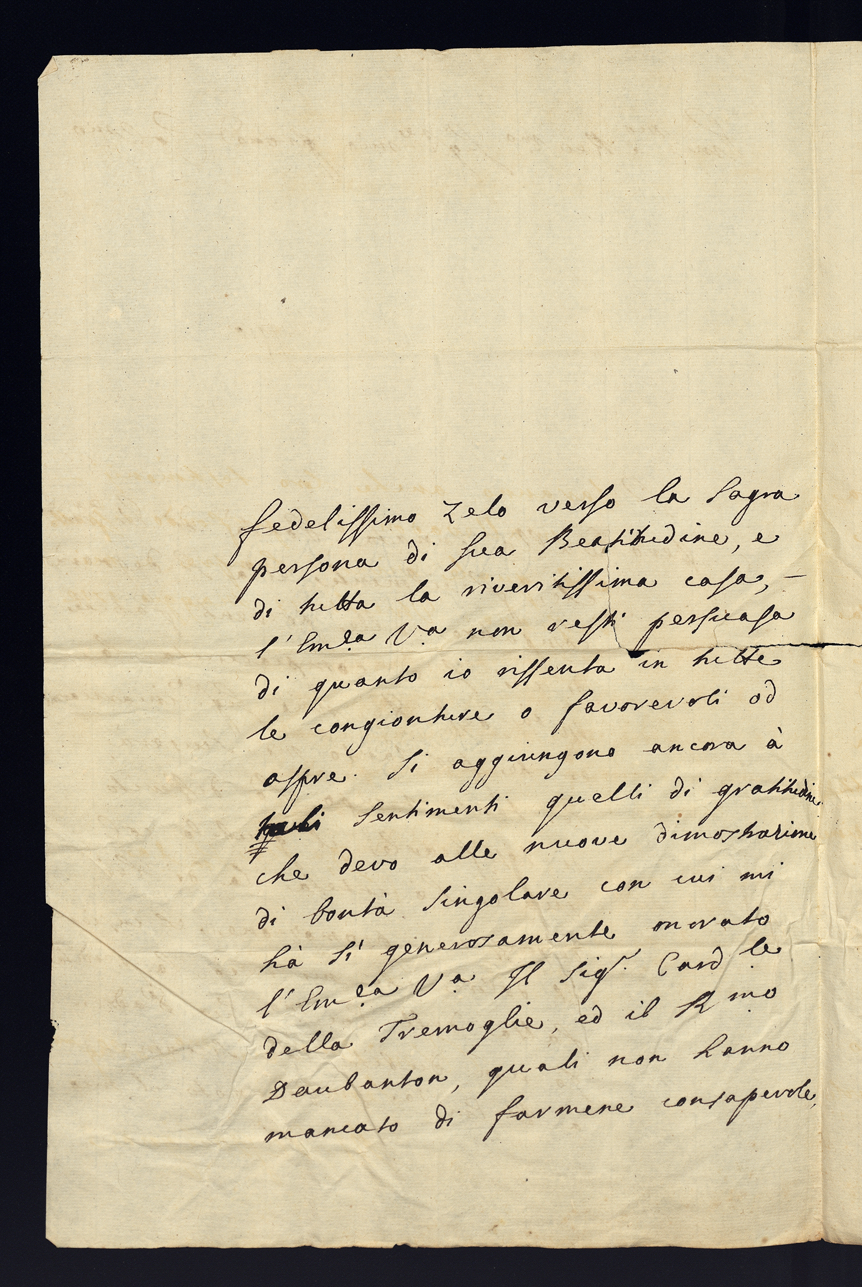 fedelissimo Zelo verso la Sagra
persona di Sua Beatitudine, e
di tutta la riveritissima casa, –
l'Em.za V.a non resti persuasa
di quanto io rissenta in tutte
le congionture o favorevoli od
aspre. Si aggiungono ancora à
tali sentimenti quelli di gratitudine
che devo alle nuove dimostrazione
di bontà singolare con cui mi
hà sì generosamente onorato
l'Em.za V.a Il Sig.r Card.le
della Tremoglie, ed il R.mo
Daubanton, quali non hanno
mancato di farmene consapevole,